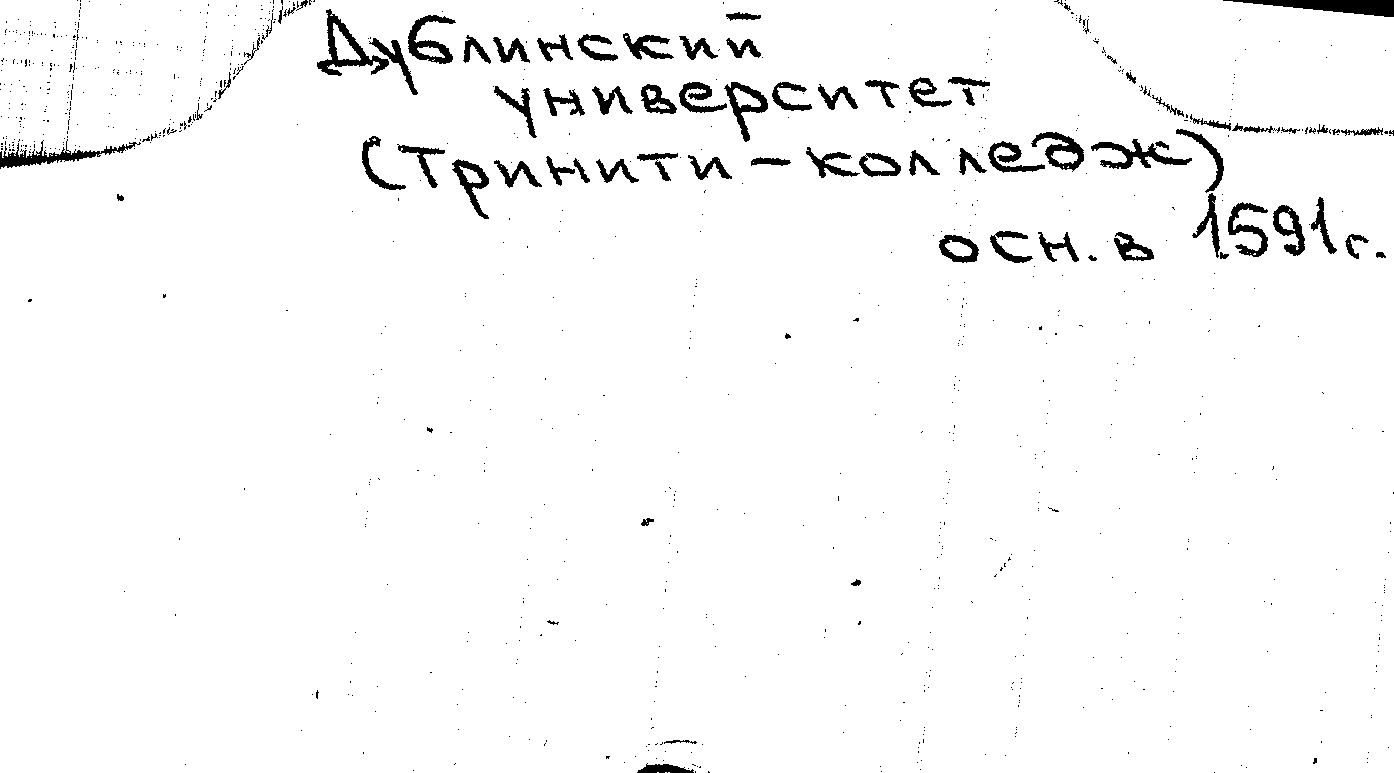 Дублинский
университет
(Тринити-колледж)
осн. в 1591г.